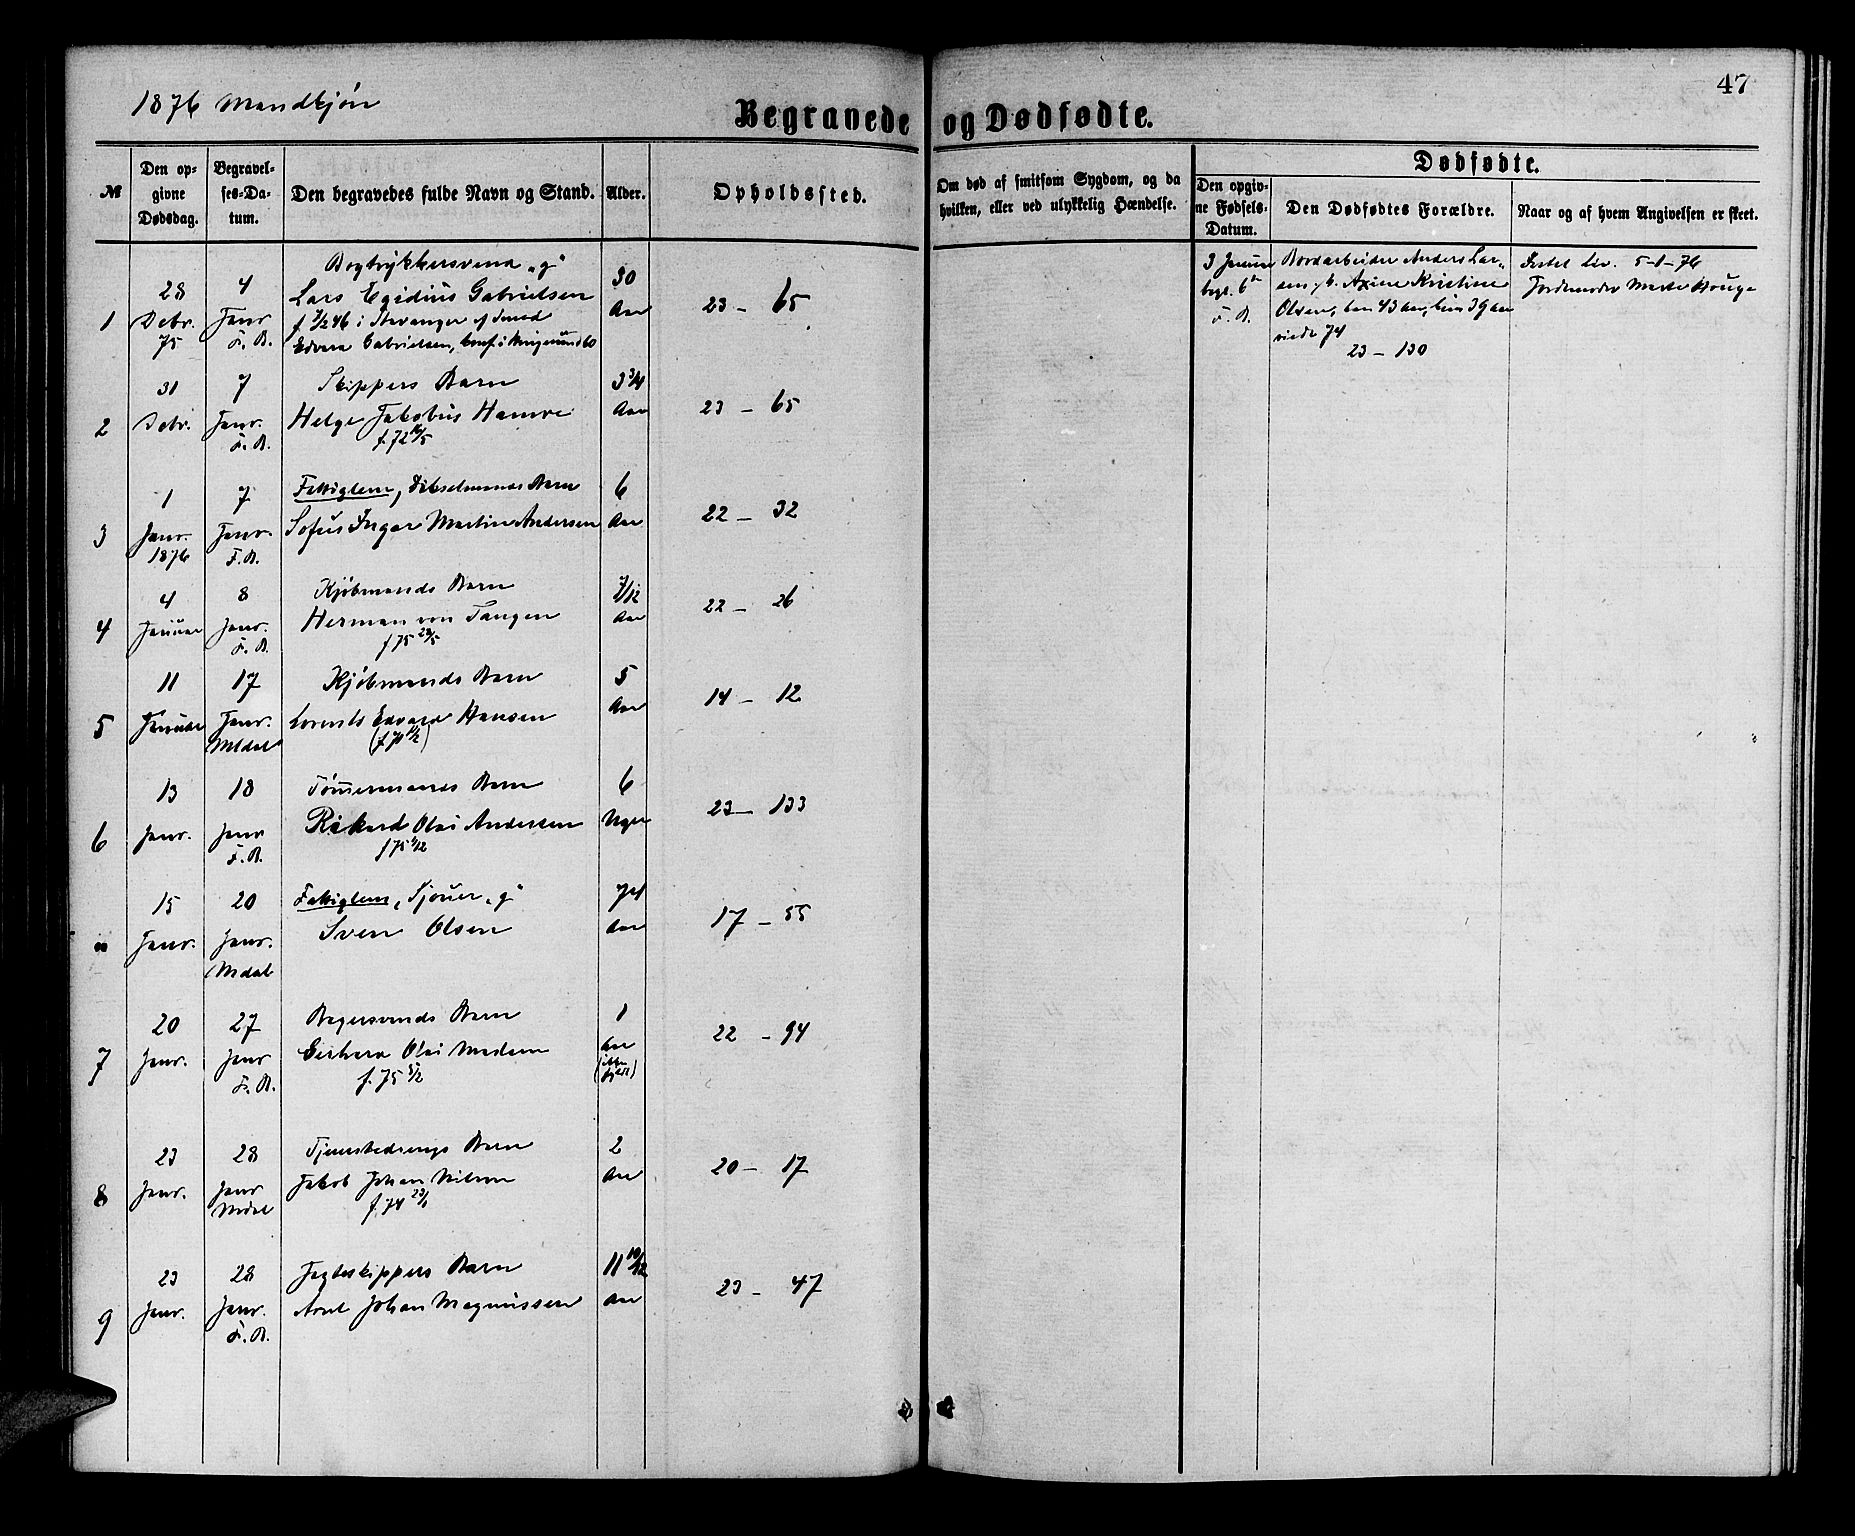 47
1876 Mandkjøn
Begravede og Dødfødte.
№
Den op-
givne
Dødsdag.
Begravel-
ses-Da-
tum.
Den begravedes fulde Navn og Stand.
Alder.
Opholdssted.
Om død af smitsom Sygdom, og da
hvilken, eller ved ulykkelig Hændelse.
Dødfødte.
Den opgiv-
ne Fødsels-
Datum.
Den Dødfødtes Forældre.
Naar og af hvem Angivelsen er skeet.
1
28
Decbr.
75
4
Janr
F. B.
Bogtrykkersvend „g“
Lars Egidius Gabrielsen
f 7/2 46 i Stavanger af Smed
Edvard Gabrielsen,
30
Aar
23 – 65
3 Januar
begr. 6
F. B.
Bordarbeider Anders Lar-
sen, h. Axine Kristine
Olsen, han 43 aar, hun 39 aar
viede 74
23 – 130
5-1-76
Jordemoder Marte Houge
2
31
Decbr.
7
Janr.
F. B.
Skippers Barn
Helge Jakobus Hamre
f. 72 16/5
3 3/4
Aar
23 – 65
3
1
Janr.
1876
7
Janr.
F. B.
Fattiglem, Barn
Sofus Ingar Martin Andersen
6
Aar
22 – 32
4
4
Januar
8
Janr.
F. B.
Kjøbmands Barn
Herman von Tangen
f 75 28/5
7/12
Aar
22 – 26
5
11
Januar
17
Janr.
Mdal
Kjøbmands Barn
Lorents Edvard Hansen
5
Aar
14 – 12
6
13
Janr.
18
Janr
F. B.
Tømmermands Barn
Rikard Olai Andersen
6
Uger
23 – 133
"
15
Janr.
20
Janr.
Mdal
Fattiglem, Sjouer „g“
Sven Olsen
74
Aar
17 – 55
7
20
Janr.
27
Janr
F. B.
Bagersvends Barn
Gerhard Olai Madsen
f. 75 5/2
1
Aar
(ikke
fyldt)
22 – 94
8
23
Janr.
28
Janr
Mdal
Tjenestedrengs Barn
Jakob Johan Nilsen
f. 74 23/1
2
Aar
20 – 17
9
23
Janr.
28
Janr.
F. B.
Jagteskippers Barn
Arnt Johan Magnussen
11 10/12
Aar
23 – 47